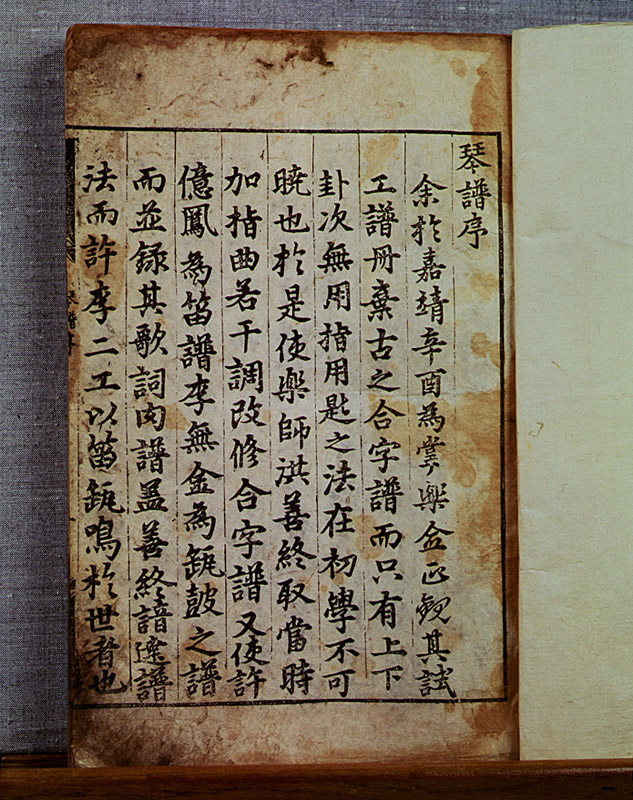 琴譜序
余扵嘉靖辛酉為掌樂僉正觀其試
工譜册棄古之合字譜而只有上下
卦次無用指用匙之法在初學不可
曉也扵是使樂師洪善終取當時
加指曲若干調改修合字譜又使許
億鳳為笛譜李無金為缻鼓之譜
而並錄其歌詞肉譜盖善終諳達譜
法而許李二工以笛缻鳴扵世者也
琴譜序